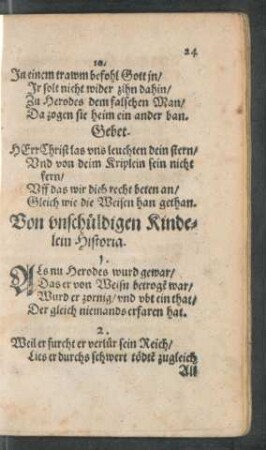 24
10.
In einem trawm befohl Gott jn/
Jr solt nicht wider zihn dahin/
Zu Herodes dem falschen Man/
Da zogen sie heim ein ander ban.
Gebet.
HErr Christ las vns leuchten dein stern/
Vnd von deim Kriplein sein nicht
fern/
Vff das wir dich recht beten an/
Gleich wie die Weisen han gethan.
Von vnschüldigen Kinde-
lein Historia.
1.
Als nu Herodes wurd gewar/
Das er von Weisn betrogē war/
Wurd er zornig/ vnd vbt ein that/
Der gleich niemands erfaren hat.
2.
Weil er furcht er verlür sein Reich/
Lies er durchs schwert tödtē zugleich
All